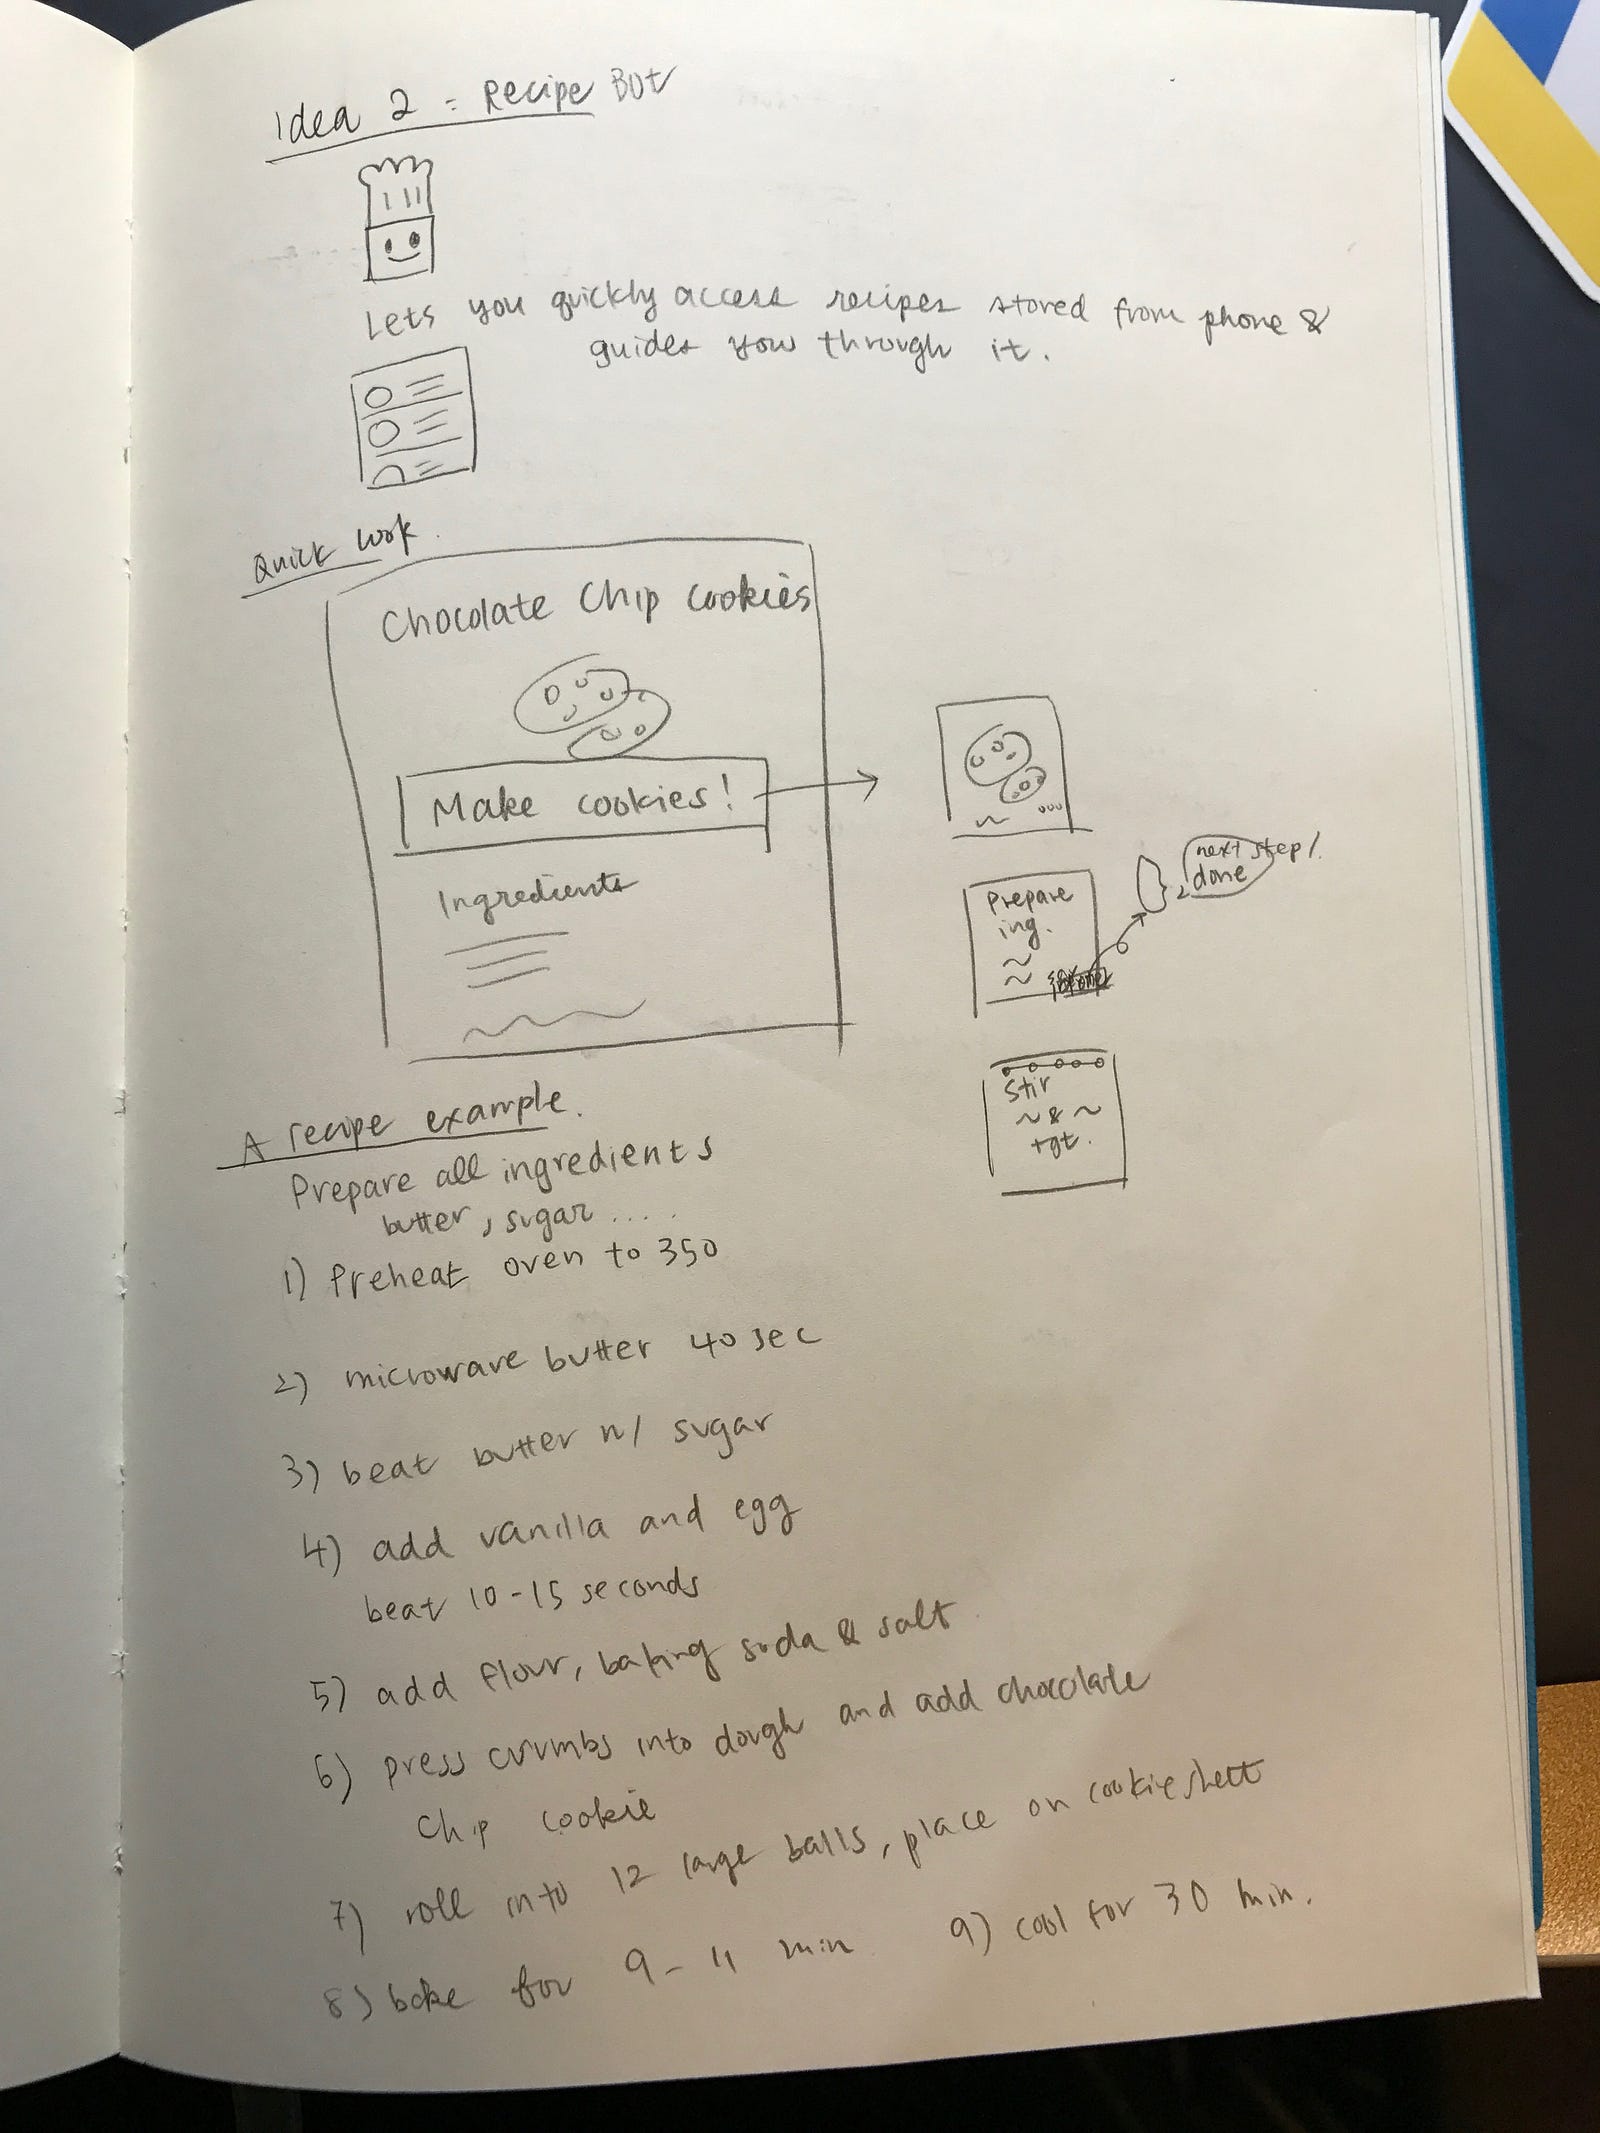 Idea 2 = Recipe Bot
Lets you quickly access recipes stored from phone &
guides you through it.
Quick work.
Chocolate Chip cookies
Make cookies!
Ingredients
next step/
done
Prepare
ing.
Stir
~ & ~
tgt.
A recipe example.
Prepare all ingredients
butter, sugar ....
1) Preheat oven to 350
2) microwave butter 40 sec
3) beat butter w/ sugar
4) add vanilla and egg
beat 10-15 seconds
5) add flour, baking soda & salt
6) press crumbs into dough and add chocolate
chip cookie
7) roll into 12 large balls, place on cookie shett
8) bake for 9-11 min
9) cool for 30 min.